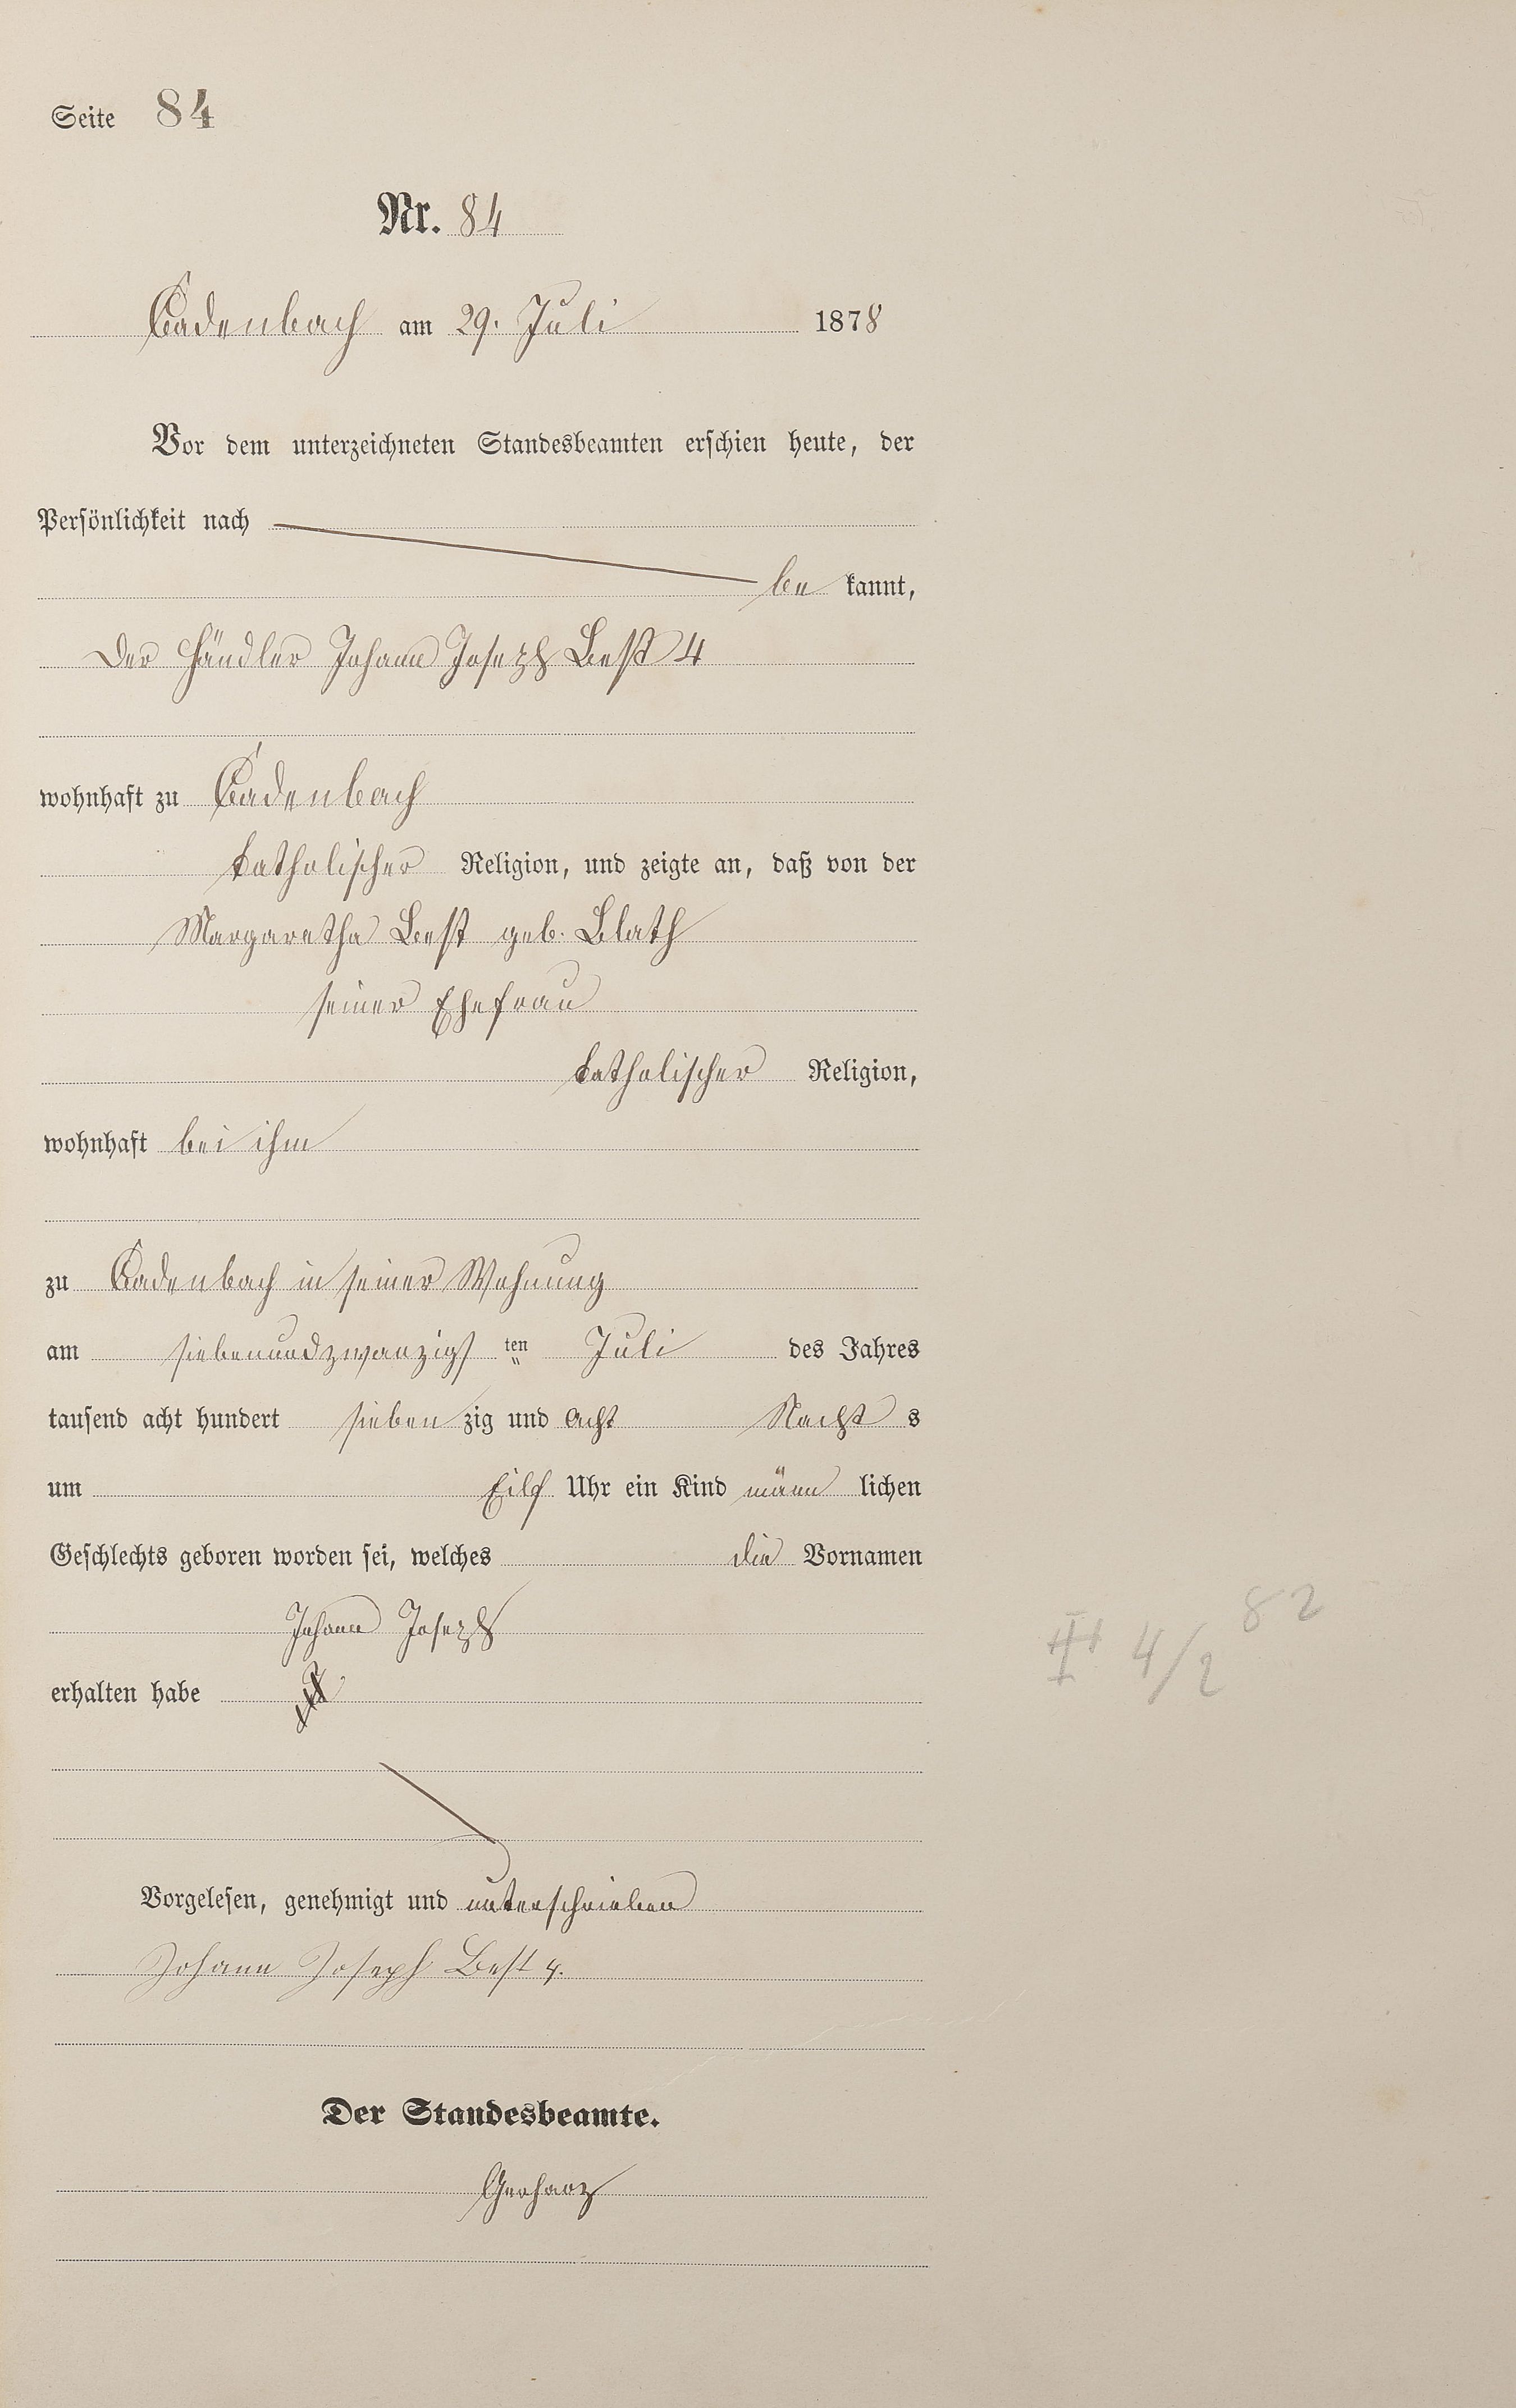 Seite 84
Nr. 84
Cadenbach am 29. Juli 1878
Vor dem unterzeichneten Standesbeamten erschien heute, der
Persönlichkeit nach
be kannt,
der Händler Johann Joseph Best 4
wohnhaft zu Cadenbach
katholischer Religion, und zeigte an, daß von der
Margaretha Best geb. Blath
seiner Ehefrau
katholischer Religion,
wohnhaft bei ihm
zu Cadenbach in seiner Wohnung
am siebenundzwanzigs ten Juli des Jahres
tausend acht hundert sieben zig und acht Nacht s
um Eilf Uhr ein Kind männ lichen
Geschlechts geboren worden sei, welches die Vornamen
Johann Joseph
erhalten habe
4/2 82
Vorgelesen, genehmigt und unterschrieben
Johann Joseph Best 4.
Der Standesbeamte.
Gerharz